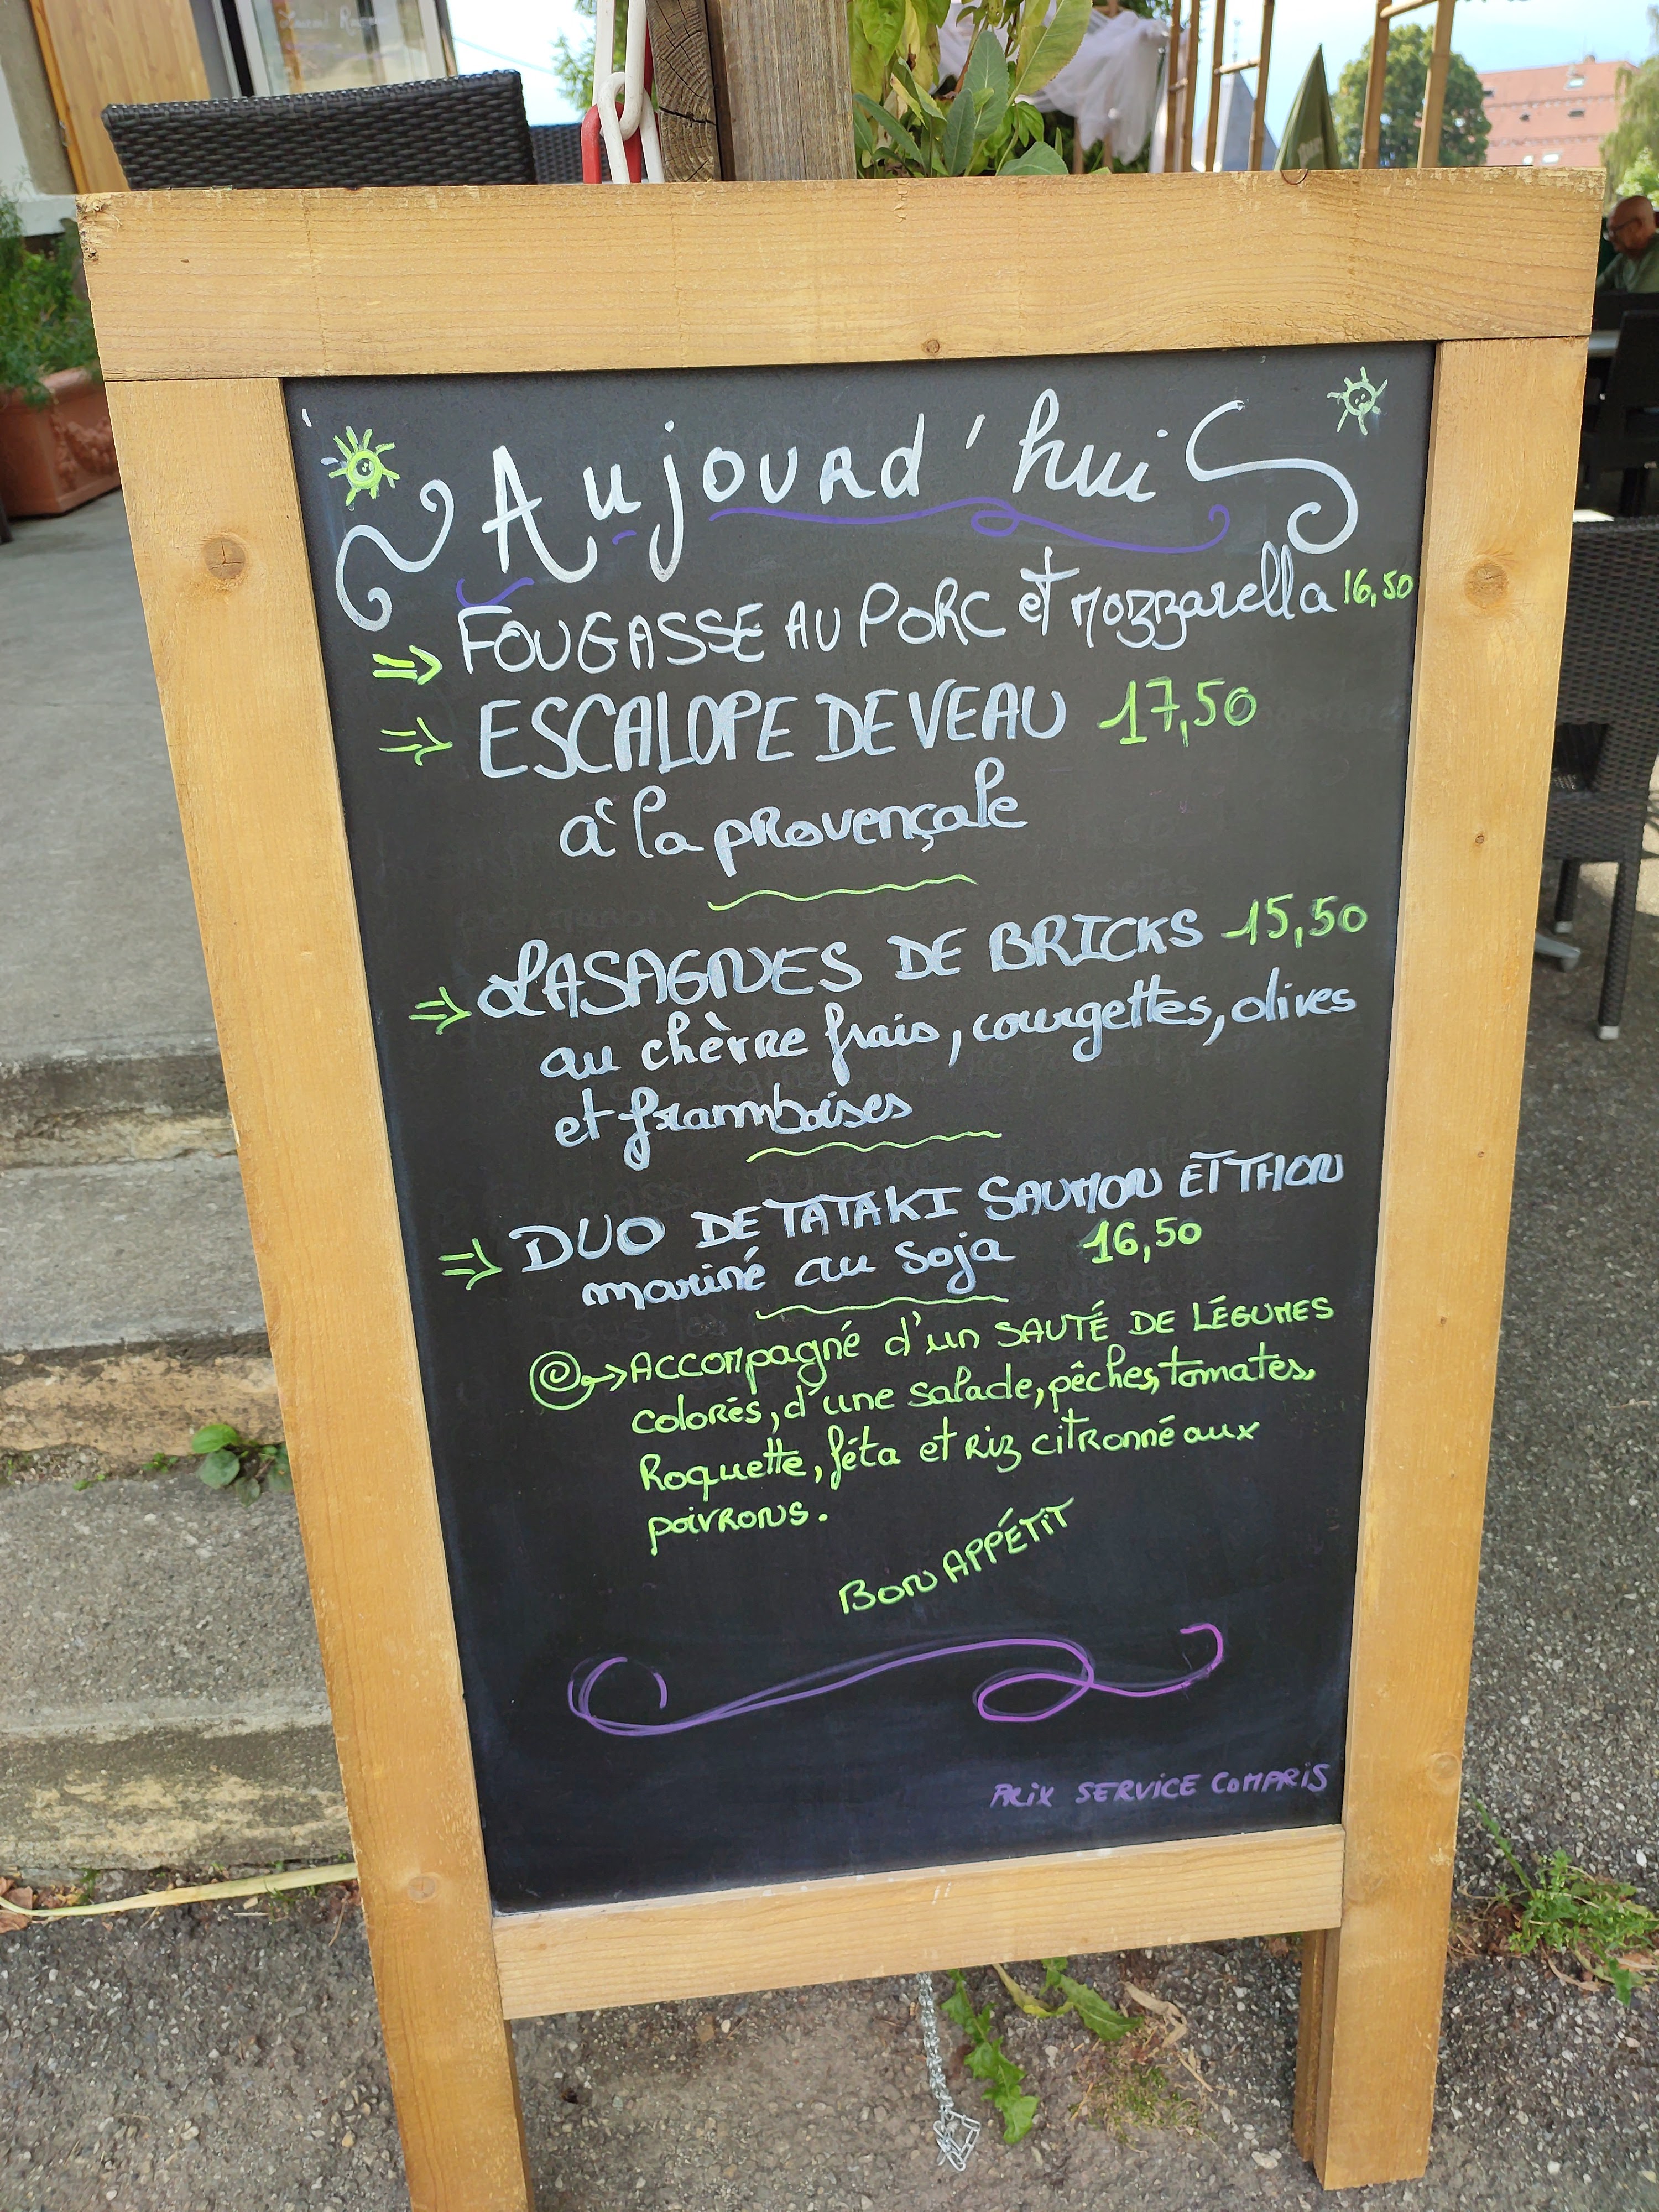 Aujourd'hui
⇒ FOUGASSE AU PORC et mozzarella 16,50
⇒ ESCALOPE DE VEAU 17,50
à la provençale
⇒ LASAGNES DE BRICKS 15,50
au chèvre frais, courgettes, olives
et framboises
⇒ DUO DE TATAKI SAUMON ET THON
mariné au soja 16,50
→ Accompagné d'un SAUTÉ DE LÉGUMES
colorés, d'une salade, pêches, tomates,
Roquette, féta et riz citronné aux
poivrons.
BON APPÉTIT
PRIX SERVICE COMPRIS